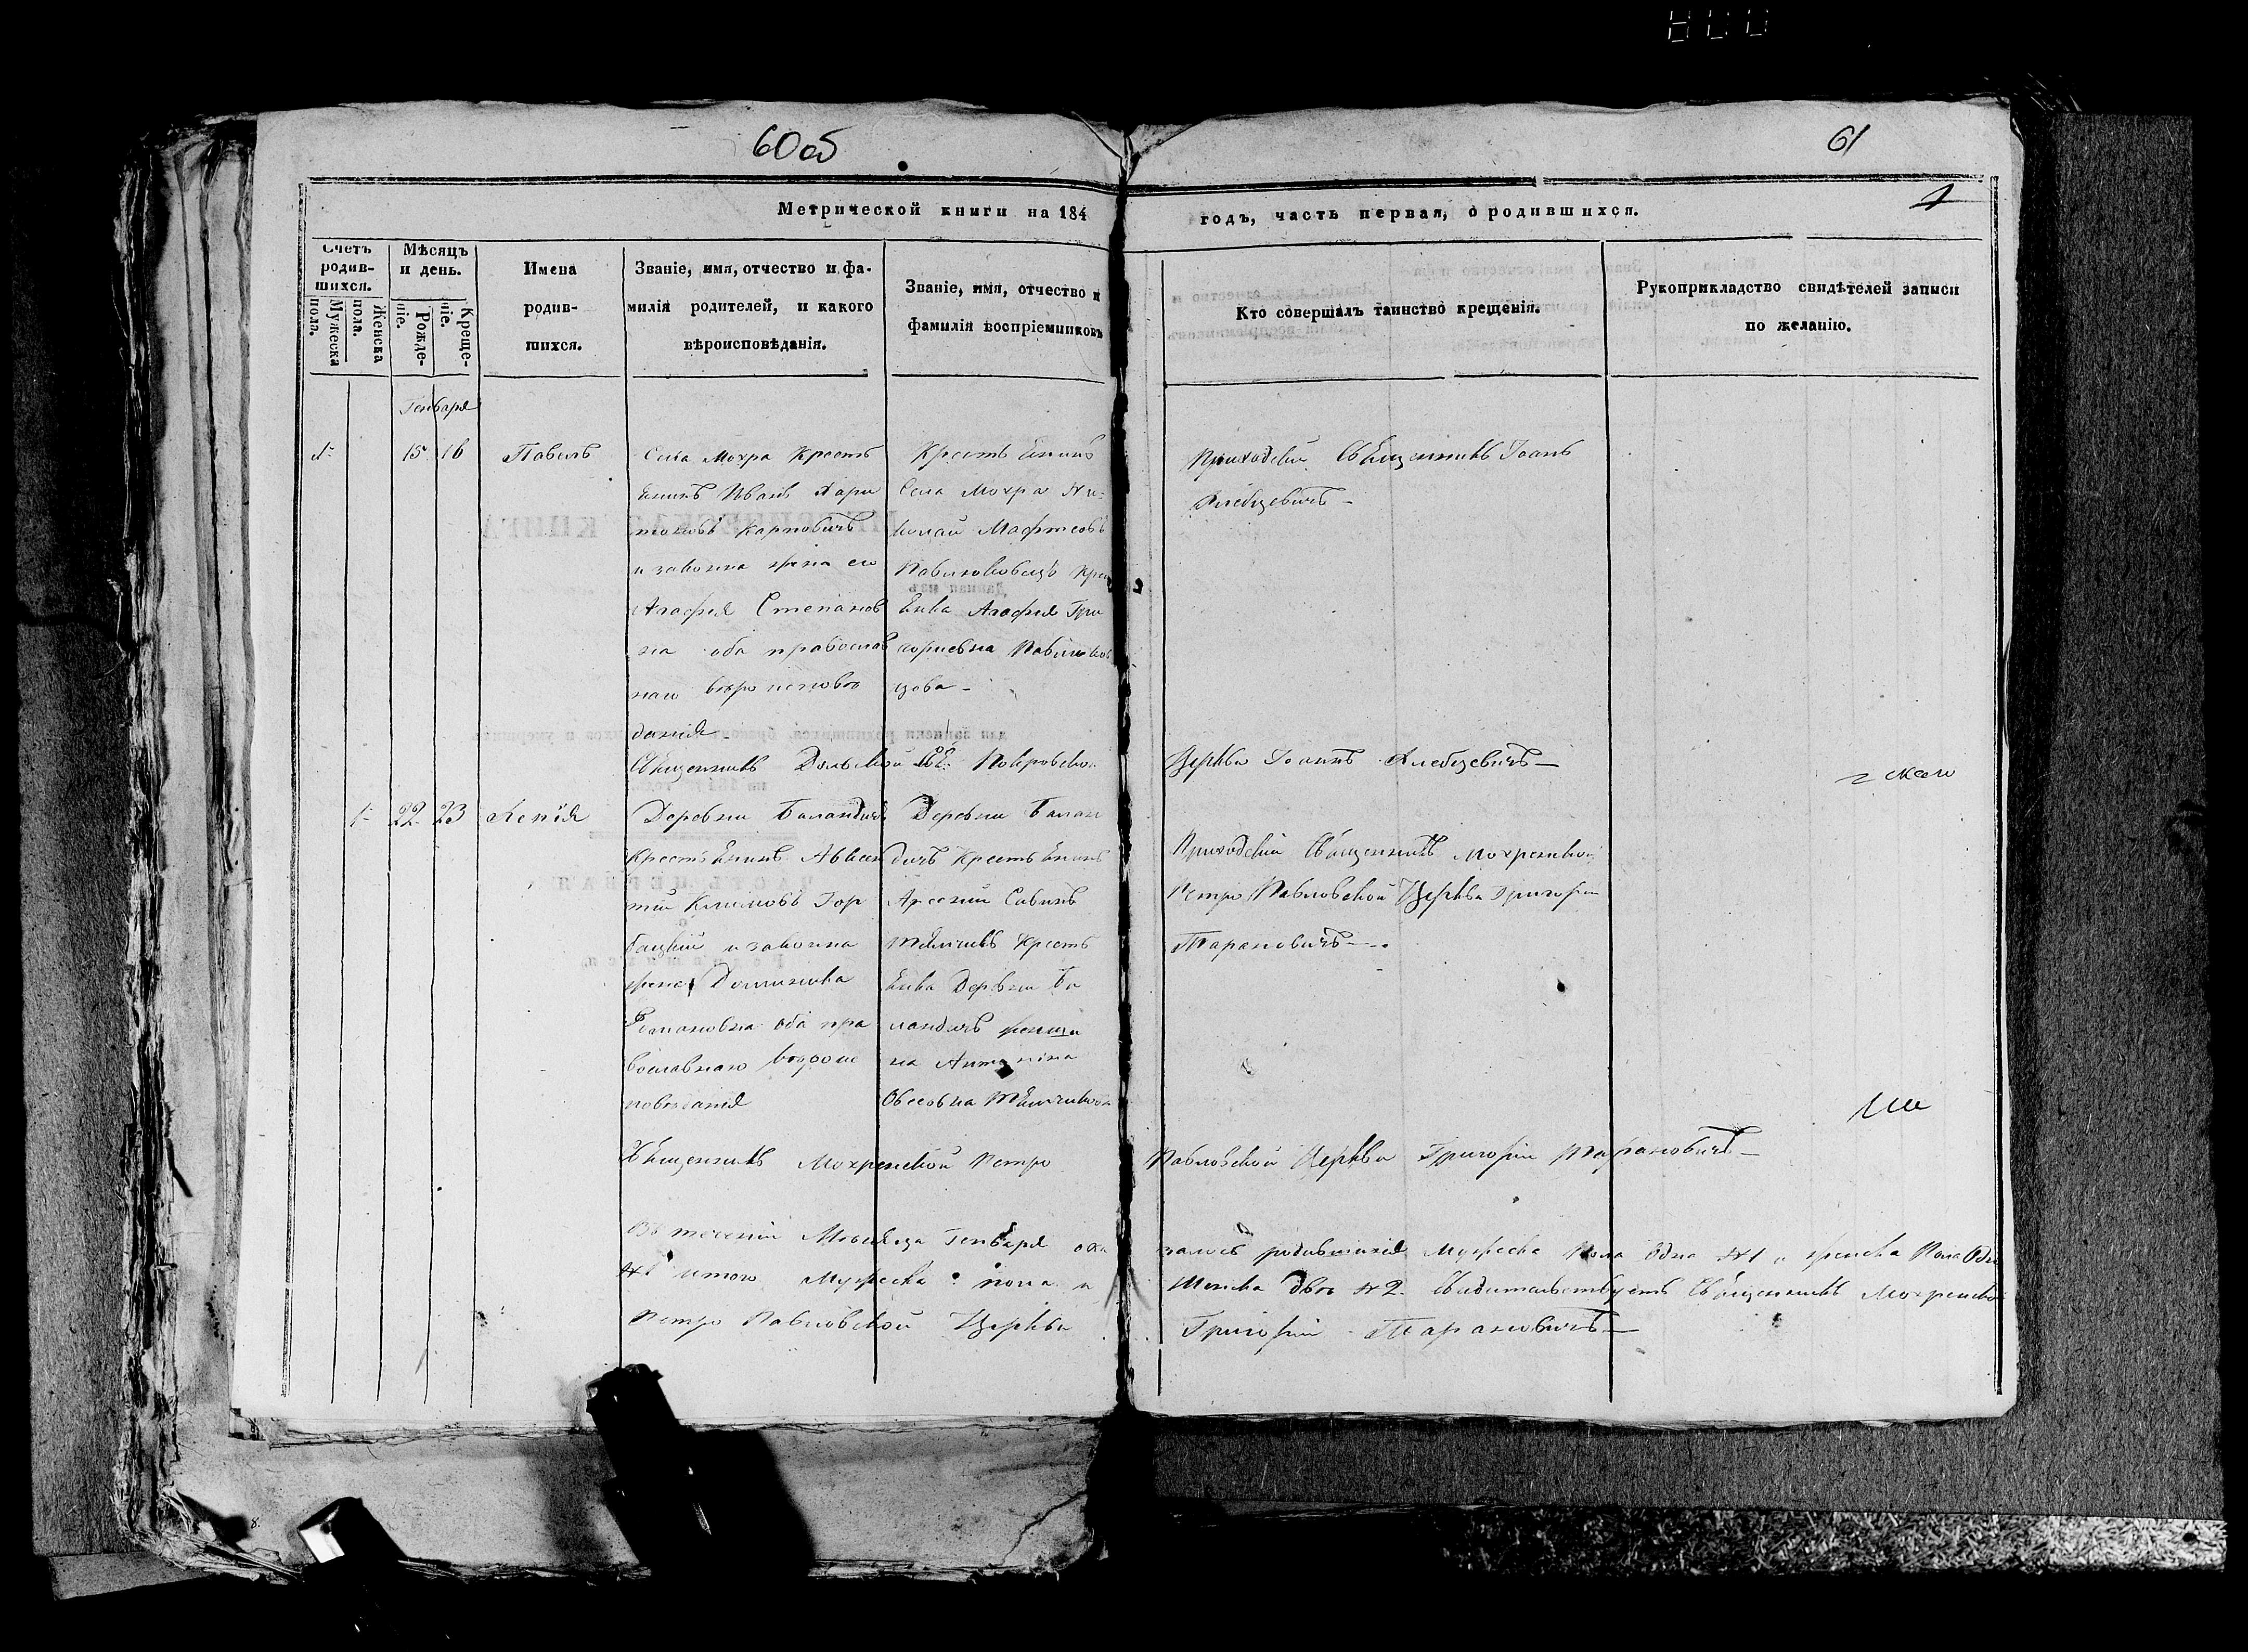 60 об
61
1
Метрической книги на 184 годъ, часть первая, о родившихся.
Счетъ родившихся.
Мужеска пола.
Женска пола.
Мѣсяцъ и день.
Рожденіе.
Крещеніе.
Имена
родив-
шихся.
Званіе, имя, отчество и фа-
милія родителей, и какого
вѣроисповѣданія.
Званіе, имя, отчество и
фамилія воспріемниковъ
Кто совершалъ таинство крещенія.
Рукоприкладство свидѣтелей записи
по желанію.
Генваря
1 15 16 Павелъ
Села Мохра Кресть
янинъ Иванъ Хари
тоновъ Карповичъ
и законна жена его
Агафія Степанов
на оба православ
наго вѣроисповѣ
данія
Крестьянинъ
Села Мохра Ни-
колай Мафтеовъ
Крес
янка Агафія Гри
горіевна
цова
Приходскій Священникъ Іоанъ
Хлебцевичъ
Священникъ Дольской Покровской
Церкви Іоаннъ Хлебцевичъ
1 22 23 Ксенія
Деревни Баландичъ
Крестьянинъ Авксен
тій Климовъ Гор
бацкій и законна
жена Доминика
Романовна оба пра
вославнаго вѣроис
повѣданія
Деревни Балан
дичъ Крестьянинъ
Арсеній Савинъ
Кресть
янка Деревни Ба
ландичъ
на Антонина
Приходскій Священникъ Мохренской
Петро Павловской Церкви Григорій
Тарановичъ
Священникъ Мохренской Петро
Павловской Церкви Григорій Тарановичъ
Въ теченіи Мѣсяца Генваря ока
залось родившихся Мужеска Пола Одно №1 и женска Пола Одно
№1 итого Мужеска пола и
Женска двѣ №2. Свидительствуетъ Священникъ Мохренской
Петро Павловской Церкви
Григорій Тарановичъ